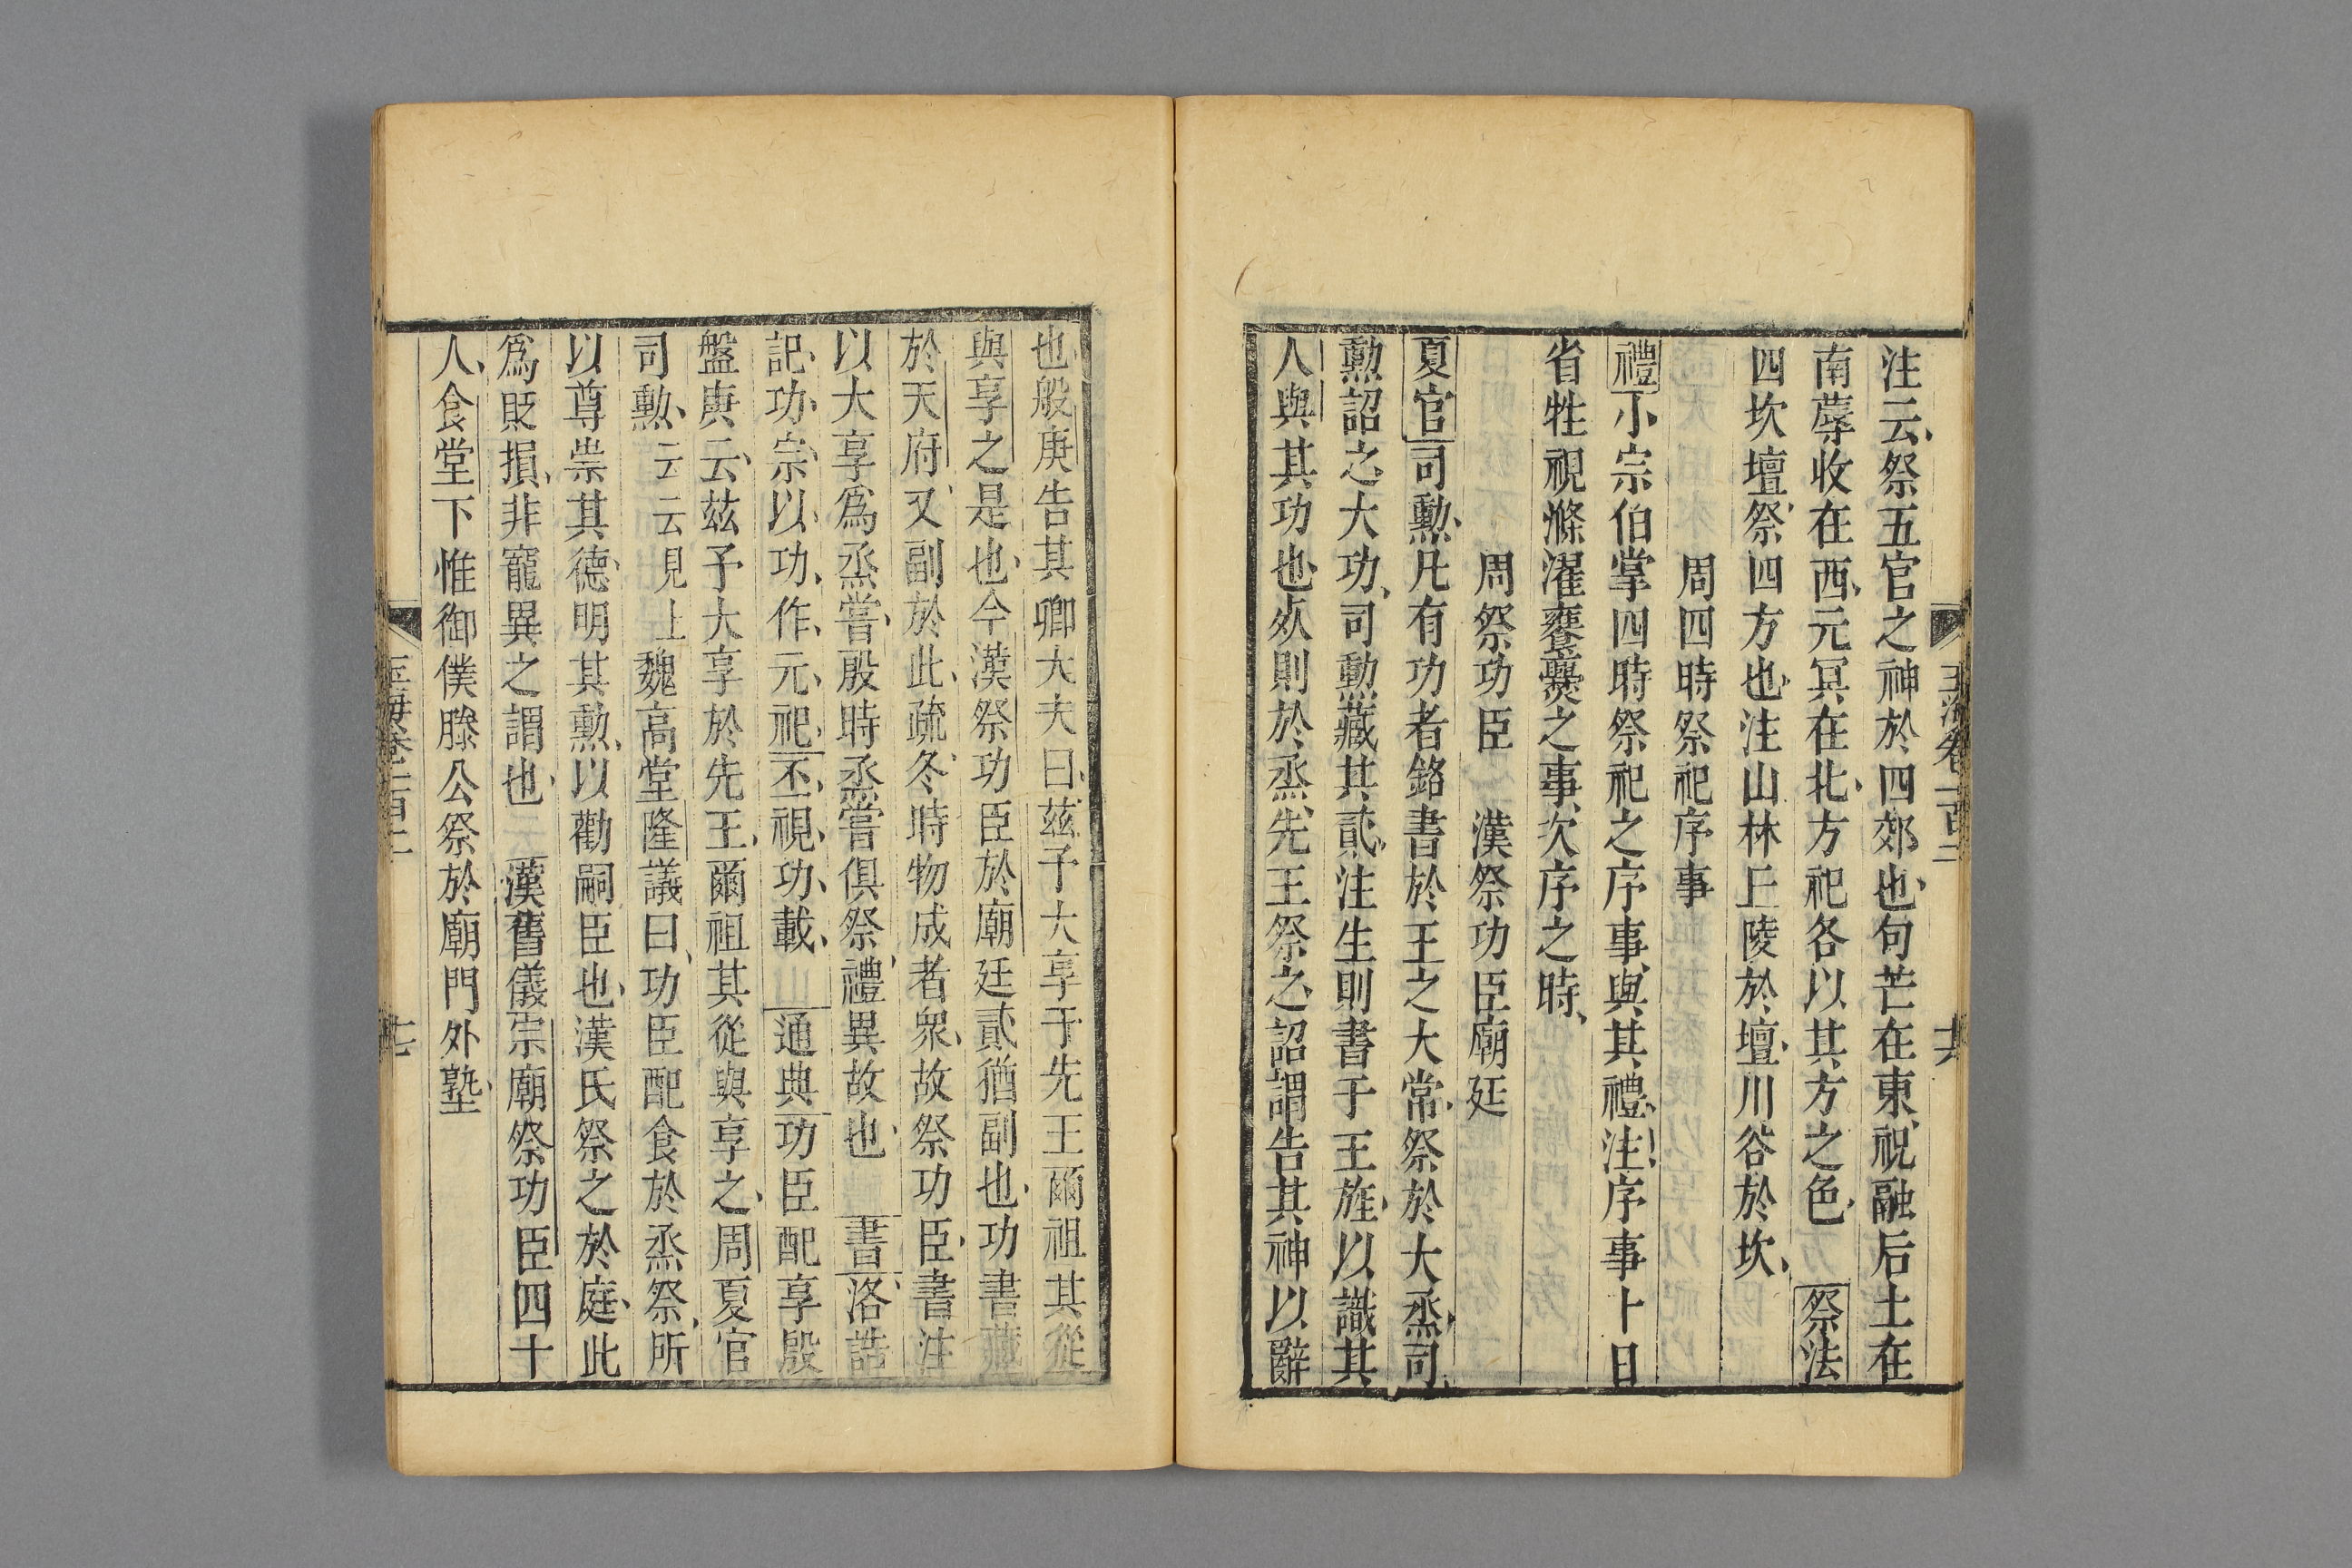 玉海卷一百二
注云祭五官之神於四郊也句芒在東祝融后土在
南蓐收在西元冥在北方祀各以其方之色 祭法
四坎壇祭四方也注山林丘陵於壇川谷於坎
周四時祭祀序事
禮小宗伯掌四時祭祀之序事與其禮注序事卜日
省牲視滌濯饔爨之事次序之時
周祭功臣 漢祭功臣廟廷
夏官司勲凡有功者銘書於王之大常祭於大烝司
勲詔之大功司勲藏其貳注生則書于王旌以識其
人與其功也死則於烝先王祭之詔謂告其神以辭
也般庚告其卿大夫曰茲予大享于先王爾祖其從
與享之是也今漢祭功臣於廟廷貳猶副也功書藏
於天府又副於此疏冬時物成者衆故祭功臣書注
以大享爲烝嘗殷時烝嘗俱祭禮異故也 書洛誥
記功宗以功作元祀丕視功載 通典功臣配享殷
盤庚云茲予大享於先王爾祖其從與享之周夏官
司勲云云見上魏高堂隆議曰功臣配食於烝祭所
以尊崇其德明其勲以勸嗣臣也漢氏祭之於庭此
爲貶損非寵異之謂也 漢舊儀宗廟祭功臣四十
人食堂下惟御僕滕公祭於廟門外塾
玉海卷一百二